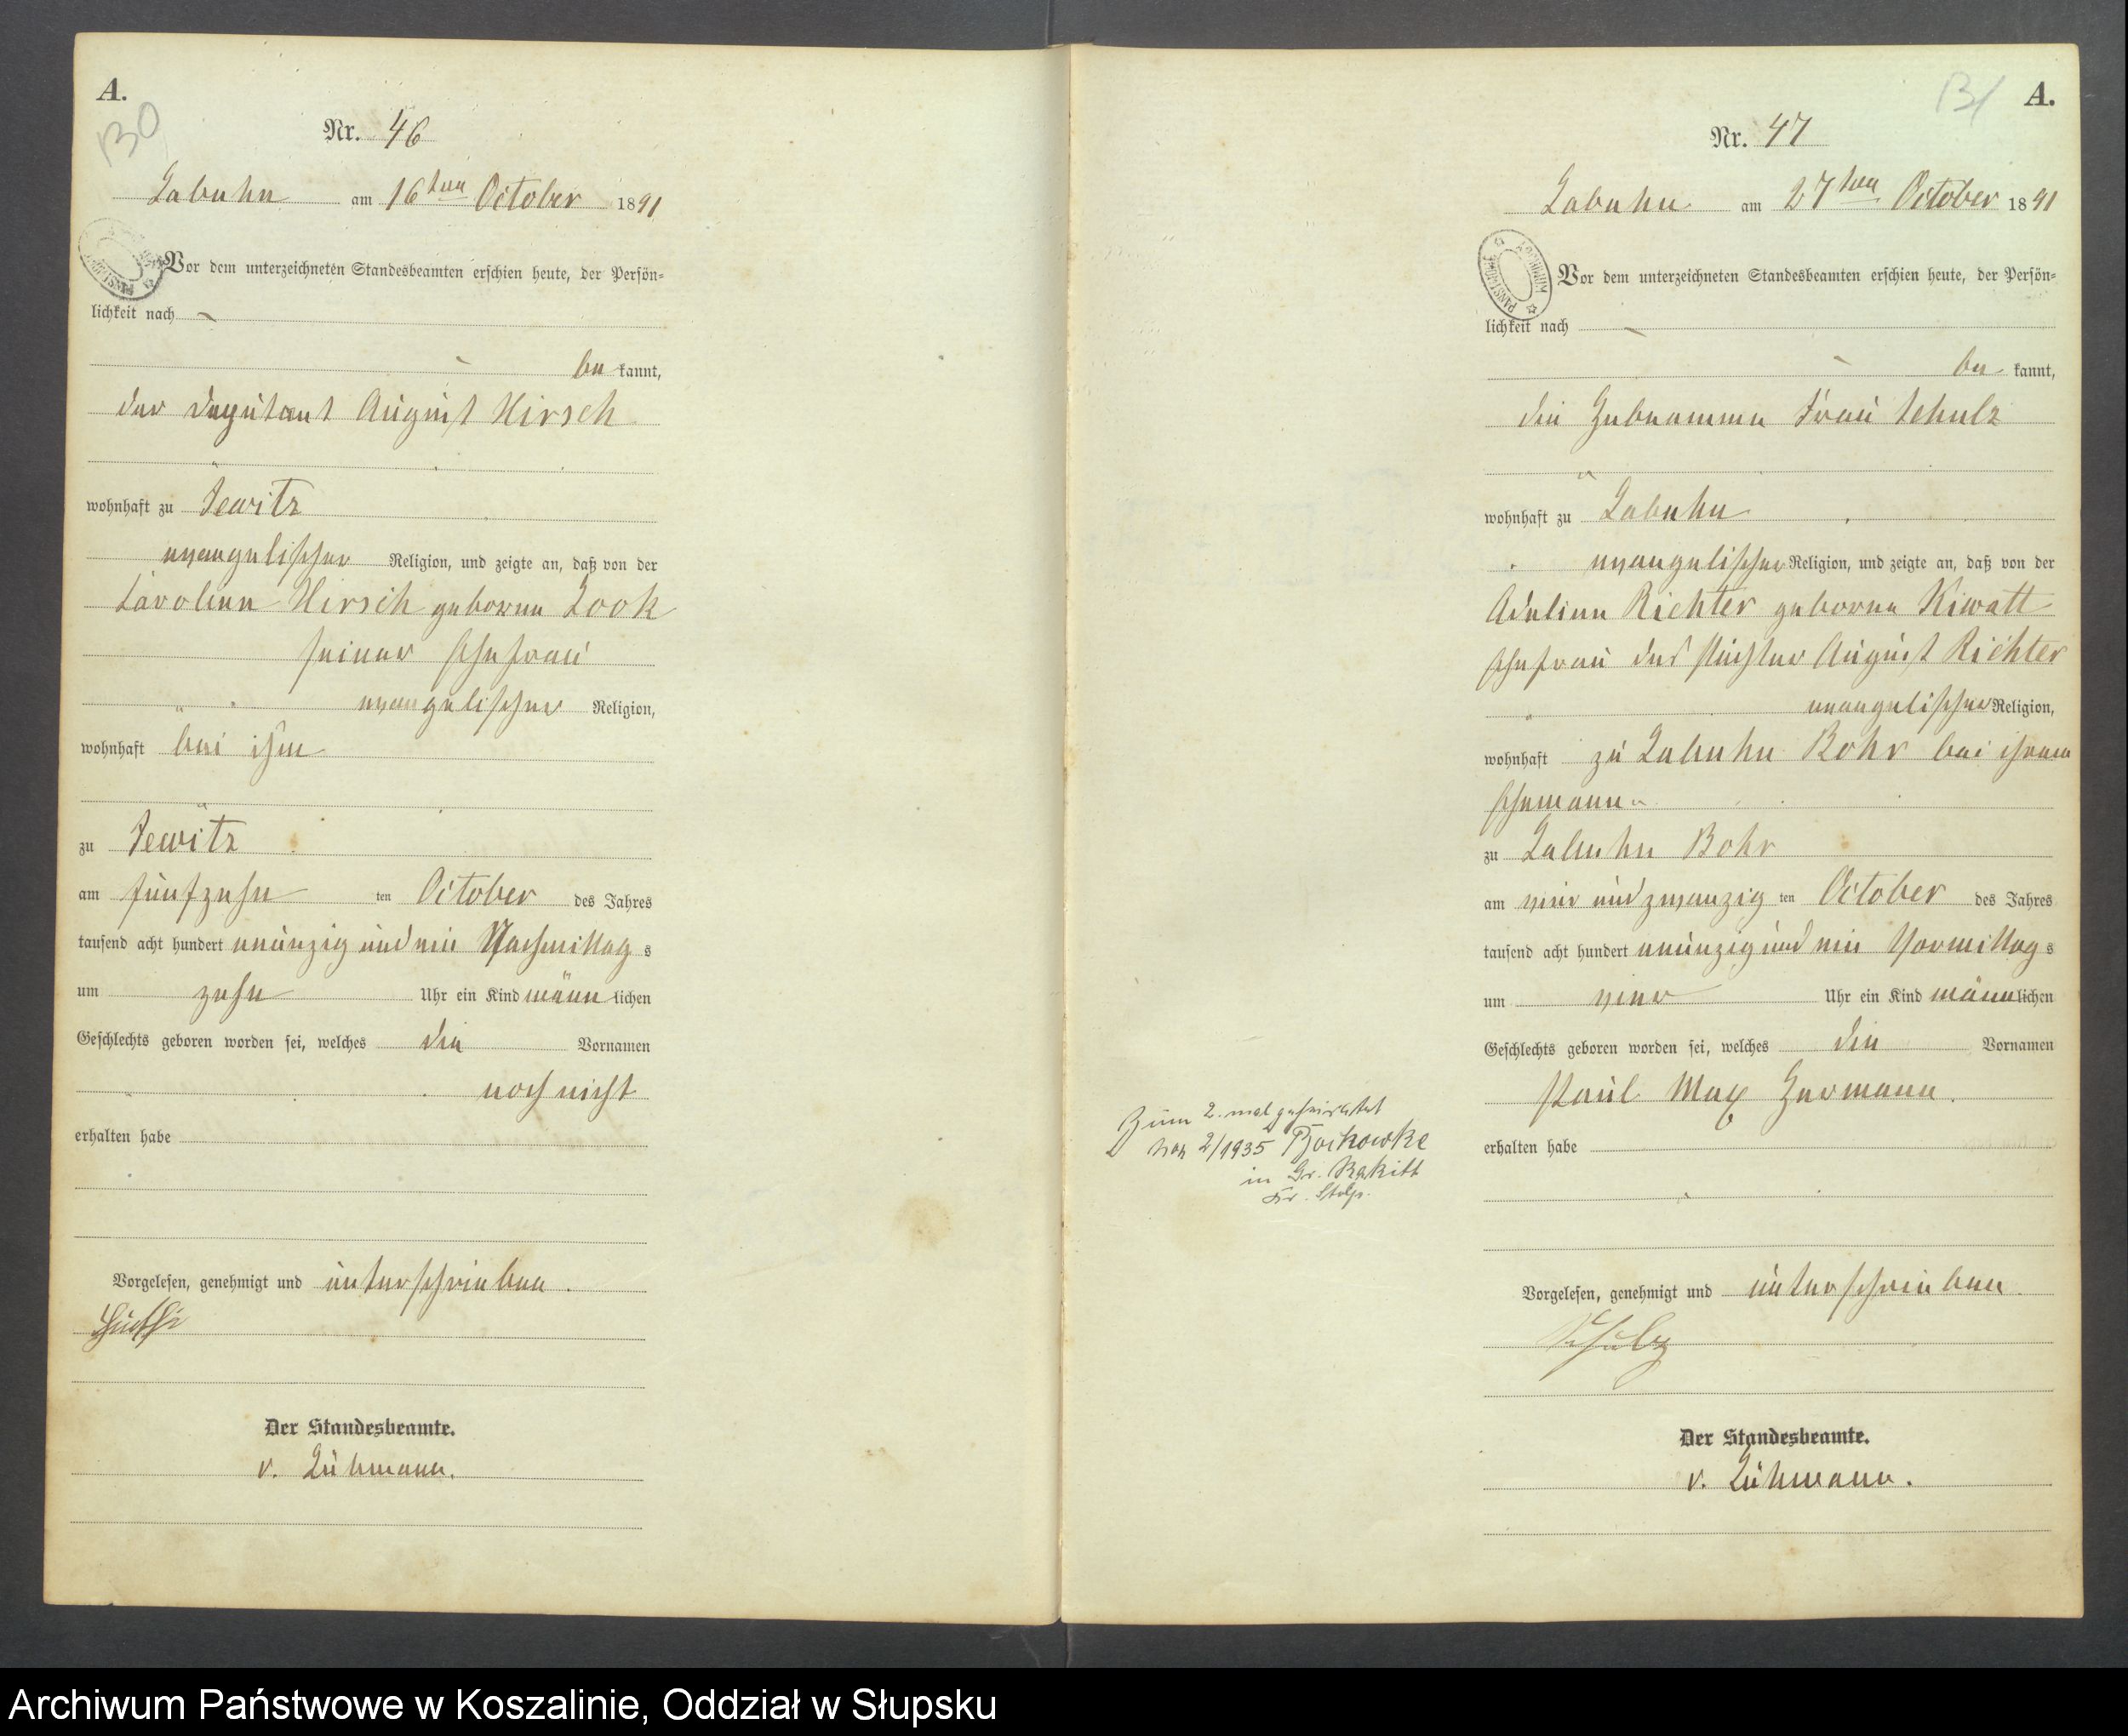 A.
130
Nr. 46
Labuhn am 16ten October 1891
Vor dem unterzeichneten Standesbeamten erschien heute, der Persön-
lichkeit nach
be kannt,
der Deputant August Hirsch
wohnhaft zu Jewitz
evangelischer Religion, und zeigte an, daß von der
Caroline Hirsch geborne Look
seiner Ehefrau
evangelischer Religion,
wohnhaft bei ihm
zu Jewitz
am fünfzehn ten October des Jahres
tausend acht hundert neunzig und ein Nachmittag s
um zehn Uhr ein Kind männ lichen
Geschlechts geboren worden sei, welches die Vornamen
noch nicht
erhalten habe
Vorgelesen, genehmigt und unterschrieben.
Der Standesbeamte.
v. Lühmann.
A.
131
Nr. 47
Labuhn am 27ten October 1891
Vor dem unterzeichneten Standesbeamten erschien heute, der Persön-
lichkeit nach
be kannt,
die Hebeamme Frau Schulz
wohnhaft zu Labuhn
evangelischer Religion, und zeigte an, daß von der
Adeline Richter geborne Kiwatt
Ehefrau des Pächter August Richter
evangelischer Religion,
wohnhaft zu Labuhn Bohr bei ihrem
Ehemann
zu Labuhn Bohr
am vier und zwanzig ten October des Jahres
tausend acht hundert neunzig und ein Vormittag s
um vier Uhr ein Kind männlichen
Geschlechts geboren worden sei, welches die Vornamen
Paul Max Hermann.
erhalten habe
Vorgelesen, genehmigt und unterschrieben.
Schulz
Der Standesbeamte.
v. Lühmann.
Zum 2. mal geheiratet
2/1935
in Gr. Rakitt
Kr. Stolp.
Archiwum Państwowe w Koszalinie, Oddział w Słupsku